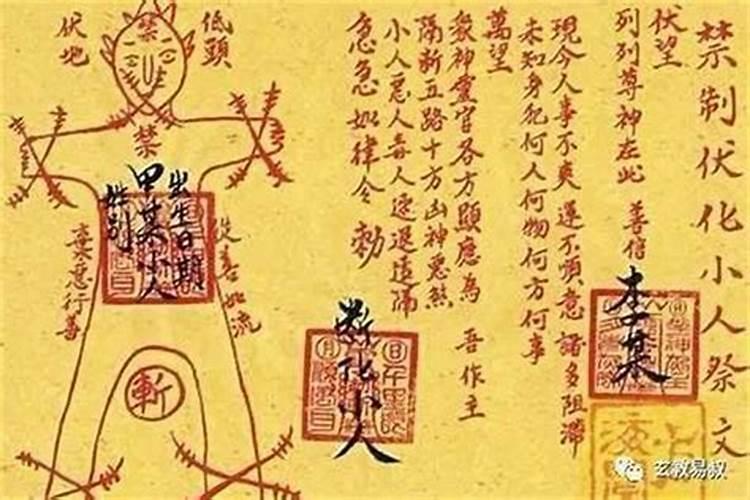 禁制伏化小人祭文
伏望
列列尊神在此 善信
李某
現今人事不爽運不順意諸多阻滯
未知身犯何人何物何方何事
萬望
衆神靈官各方顯應為 吾作主
隔斷五路十方凶神惡煞
小人惡人毒人速退遠隔
急急如律令 勅
斷化小人
低頭
伏地
禁
禁
出生日期
甲某小人
性别
從善如流
棄惡行善
斬
玄教易叔